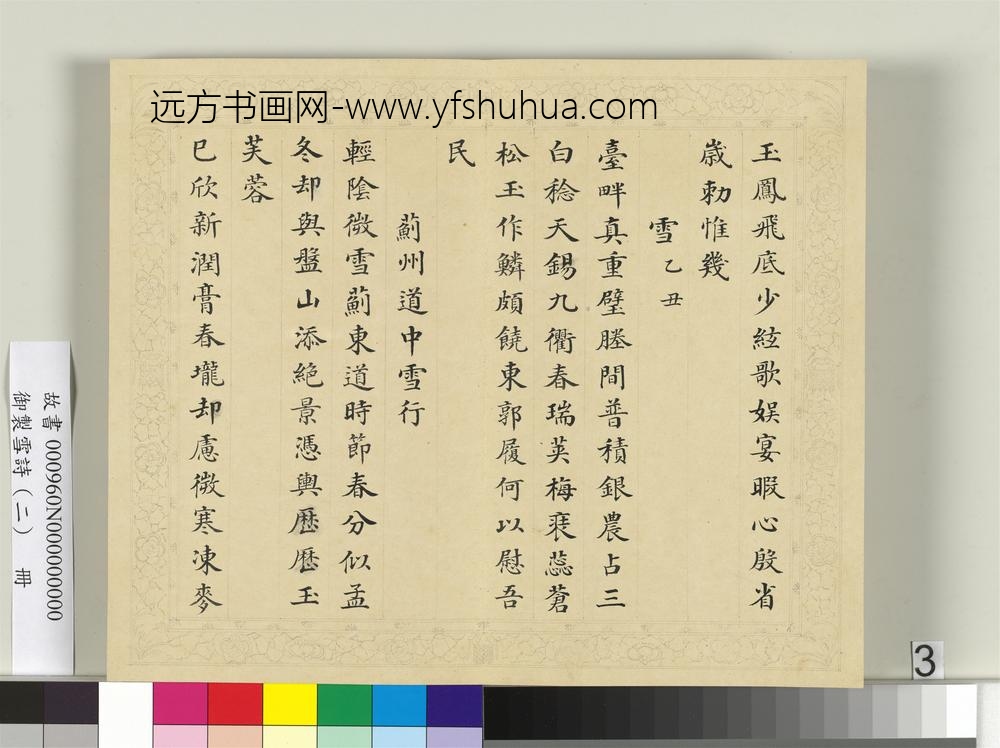 远方书画网-www.yfshuhua.com
玉鳳飛底少絃歌娛宴暇心殷省
歲勅惟幾
雪乙丑
臺畔真重璧塍間普積銀農占三
白稔天錫九衢春瑞英梅裴蕊蒼
松玉作鱗頗饒東郭履何以慰吾
民
薊州道中雪行
輕陰微雪薊東道時節春分似孟
冬却與盤山添絶景憑輿歷歷玉
芙蓉
已欣新潤膏春壠却慮微寒凍麥
故書 000960N000000000
御製雪詩(二) 冊
3